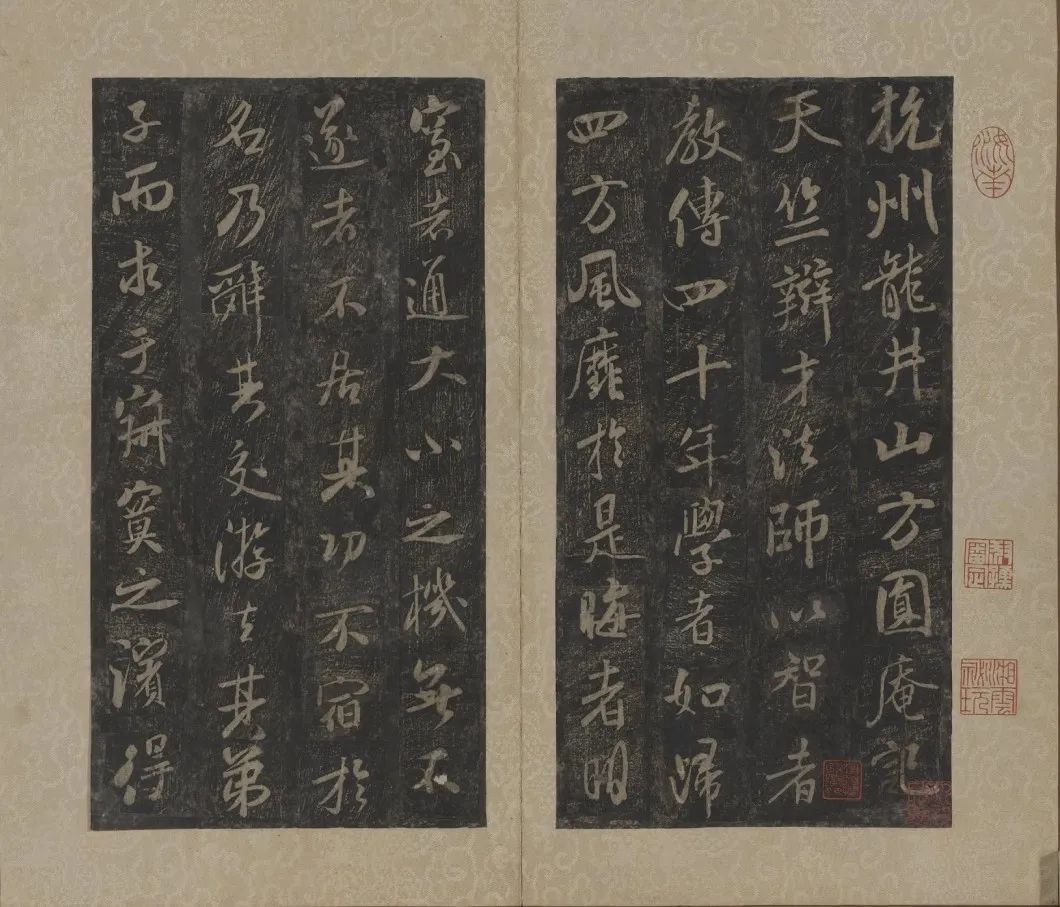 杭州龍井山方圓庵記
天竺辯才法師以智者
教傳四十年學者如歸
四方風靡於是晦者明
窒者通大小之機無不
遂者不居其功不宿於
名乃辭其交游去其弟
子而求于寂寞之濱得